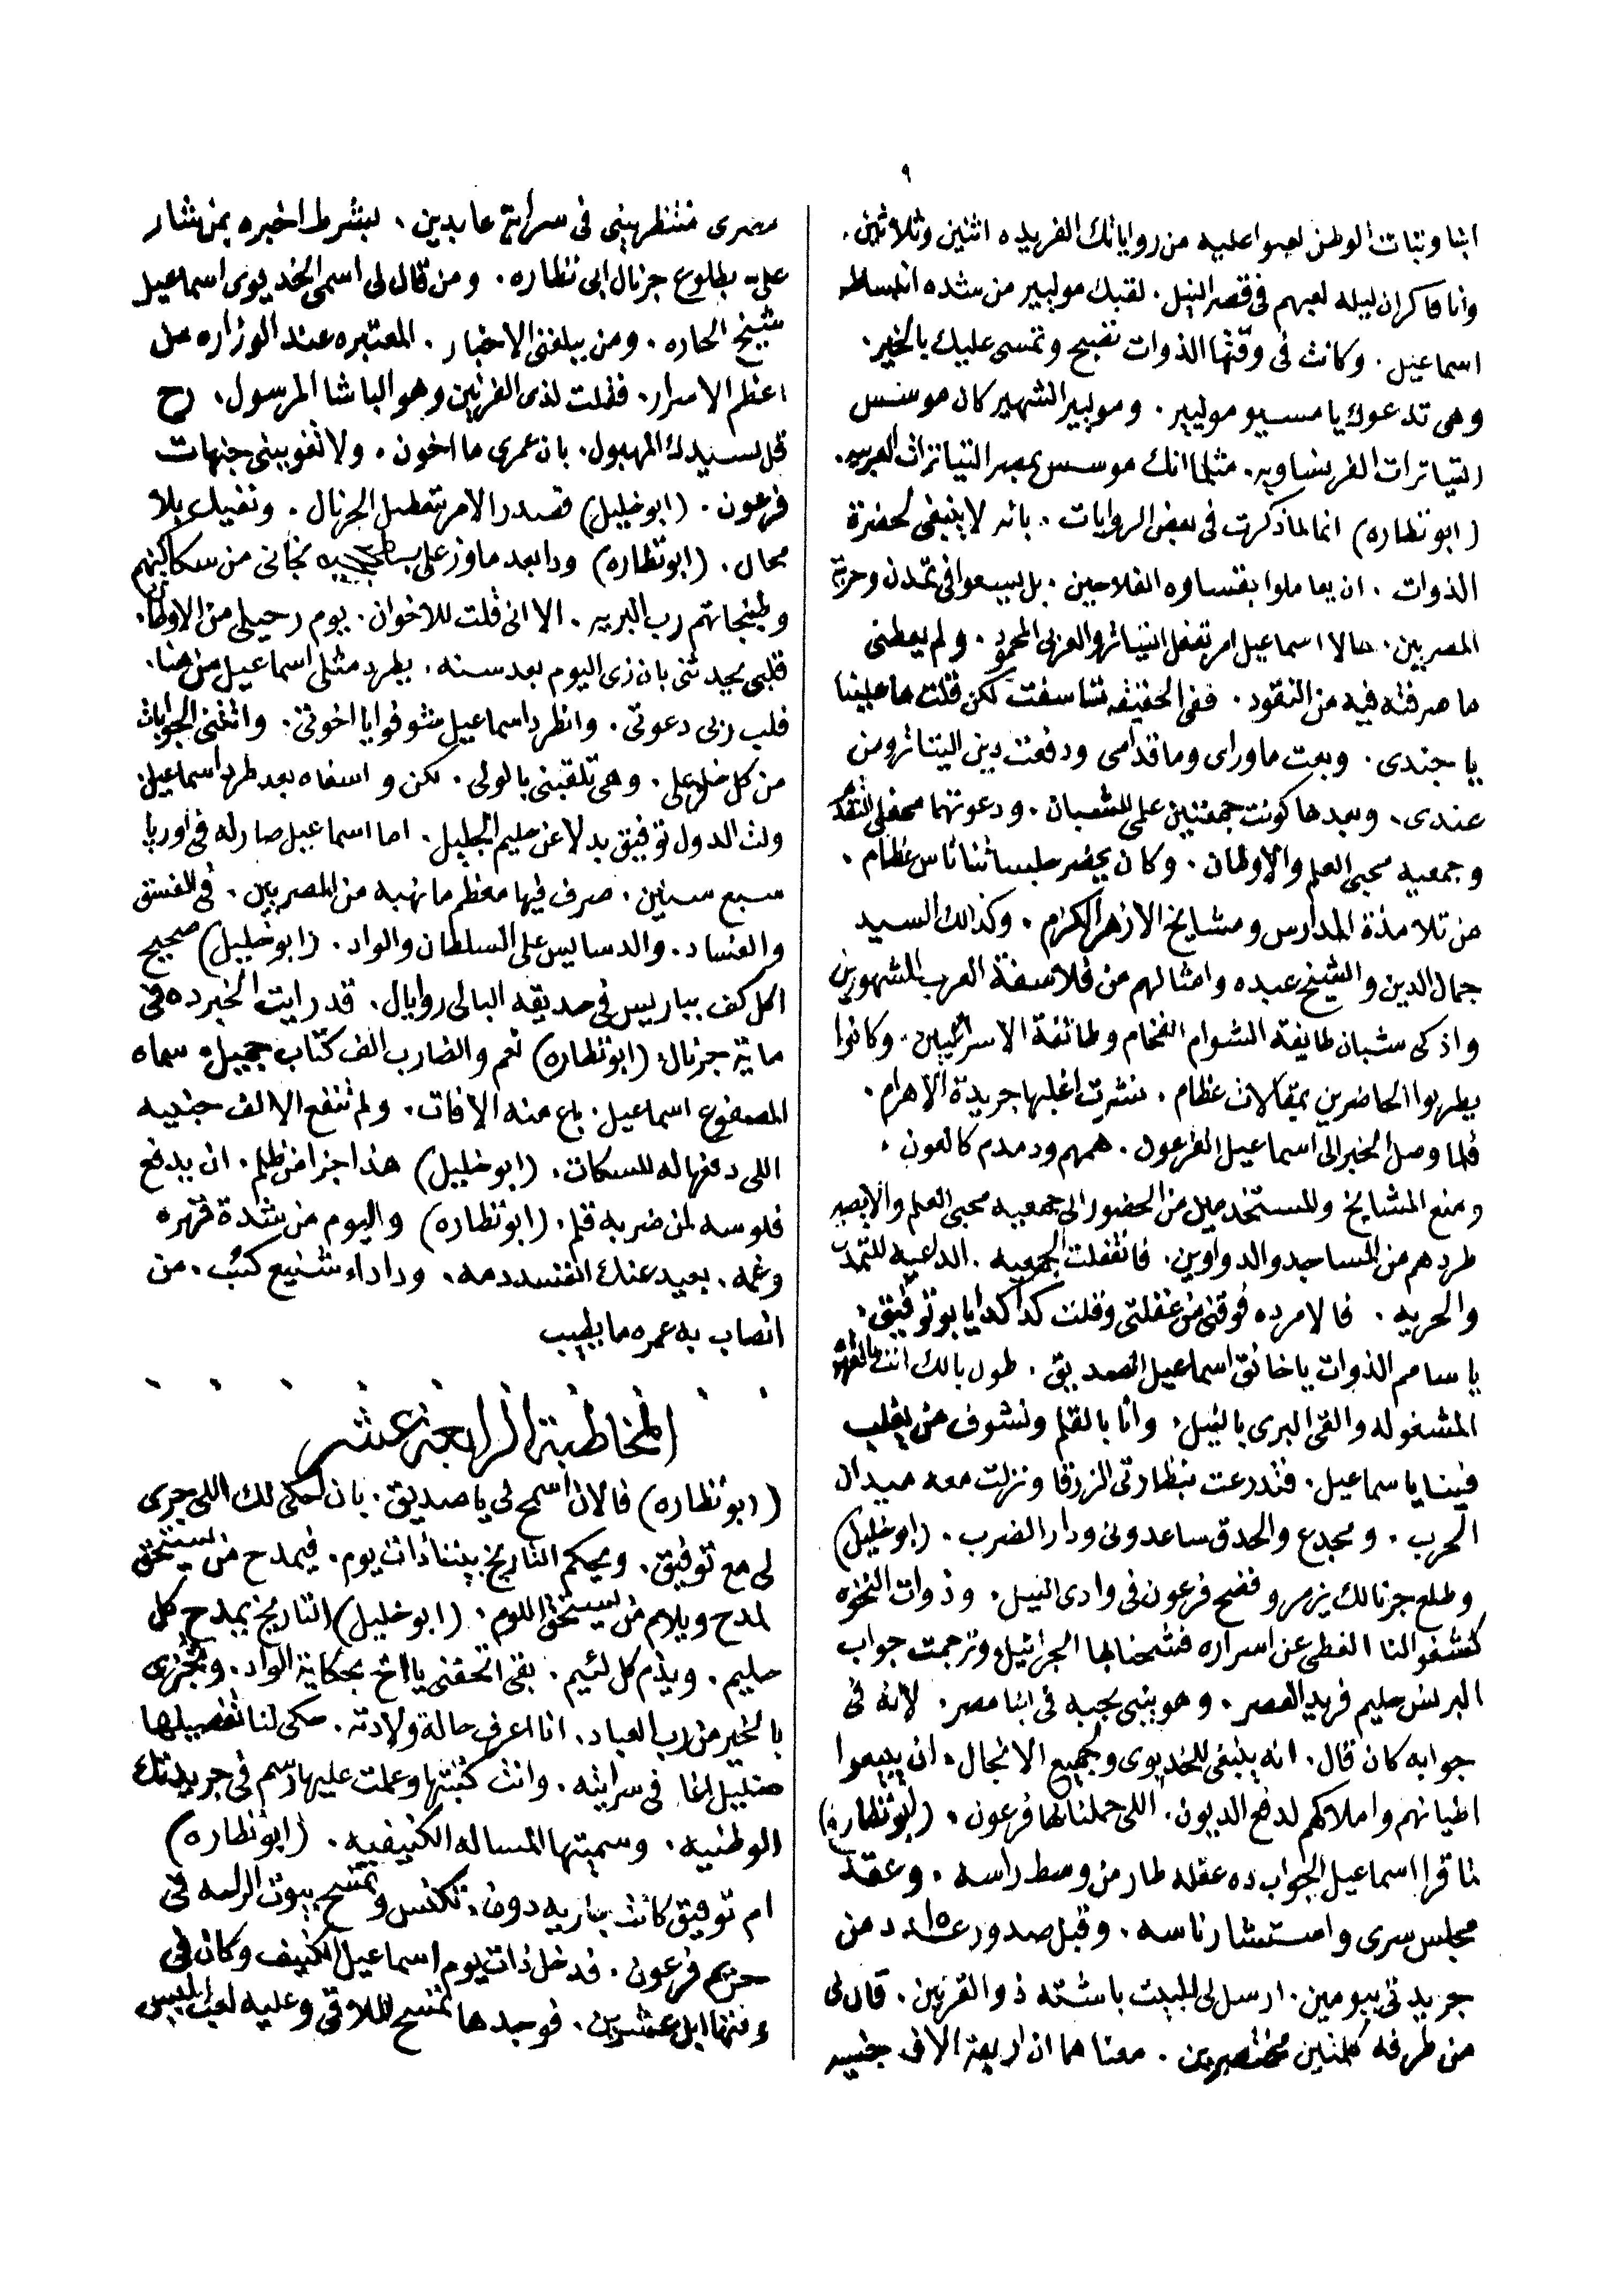 ٩
ابنا وبنات الوطن لعبوا عليه من رواياتك الفريده اثنين وثلاثين.
وانا فاكر ان ليله لعبهم فى قصر النيل. لقبك موليير من شده انبساطه
اسماعيل. وكانت فى وقتها الذوات تصبح وتمسى عليك بالخير.
وهى تدعوك يا مسيو موليير. وموليير الشهير كان موسس
التياترات الفرنساويه. مثلما انك موسس بمصر التياترات العربيه.
(ابو نظاره) انما لما ذكرت فى بعض الروايات. بانه لا ينبغى لحضرة
الذوات. ان يعاملوا بقساوه الفلاحين. بل يسعوا فى تمدن وحرية
المصريين. حالا اسماعيل امر بقفل التياترو العربى المحمود. ولم يعطنى
ما صرفته فيه من النقود. ففى الحقيقه تتاسفت لكن قلت ما علينا
يا جندى. وبعت ماوراى وما قدامى ودفعت دين التياترو من
عندى. وبعدها كونت جمعتين على للشعبان. ودعوتهما محفل التقدم
وجمعيه محبى العلم والاوطان. وكان يحضر جلساتنا ناس عظام.
من تلامذة المدارس ومشايخ الازهر الكرام. وكذالك السيد
جمال الدين والشيخ عبده وامثالهم من فلاسفة العرب المشهورين
واذكى شبان طايفة الشوام الفخام وطائفة الاسرائيليين. وكانوا
يطربوا الحاضرين بمقالات عظام. نشرت اغلبها جريدة الاهرام.
فلما وصل الخبر الى اسماعيل الفرعون. همهم ودمدم كالعون.
ومنع المشايخ والمستخدمين من الحضور الى جمعيه محبى العلم والا يصير
طردهم من المساجد والدواوين. فانقفلت الجمعيه. الداعيه للتمدن
والحريه. فالامر ده فوقنى من غفلتى وقلت كدا كدا يا بو توفيق.
يا سامم الذوات يا خانق اسماعيل الصديق. طول بالك انت بالقهوه
المشغوله والقى البرى بالنيل. وانا بالقلم ونشوف من يغلب
فينا يا سماعيل. فتدرعت بنظارتى الزرقا ونزلت معه ميدان
الحرب. ومجدع والحدق ساعدونى ودار الضرب. (ابو خليل)
وطلع جرنالك يزمر وفضح فرعون فى وادى النيل. وذوات النخوه
كشفوا لنا الغطى عن اسراره فشحنا بها الجرانيل وترجمت جواب
البرنس حليم فريد العصر. وهو ينبى بحبه فى ابنا مصر. لانه فى
جوابه كان قال. انه ينبغى للخديوى وجميع الانجال. ان يبيعوا
اطيانهم واملاكهم لدفع الديون. اللى حملنا لها فرعون. (ابو نظاره)
لما قرا اسماعيل الجواب ده عقله طار من وسط راسه. وعقد
مجلس سرى واستشار ناسه. وقبل صدور ١٥ عدد من
جريدتى بيومين. ارسل لى للبيت باشته ذو القرنين. قال لى
من طرفه كلمتين مختصرين. معناهما ان اربعة الاف جنيه
مصرى منتظرينى فى سراية عابدين. بشرط اخبره بمن شار
على بطلوع جرنال ابى نظاره. ومن قال لى اسمى الخديوى اسماعيل
شيخ الحاره. ومن يبلغنى الاخبار. المعتبره عند الوزاره من
اعظم الاسرار. فقلت لذى القرنين وهو الباشا المرسول. رح
قل لسيدك المهبول. بان عمرى ما اخون. ولا تغوينى جنيهات
فرعون. (ابو خليل) فصدر الامر بتعطيل الجرنال. ونفيك بلا
محال. (ابو نظاره) ودا بعد ماوز على نجانى من سكاكينهم
وطبنجاتهم رب البريه. الا انى قلت للاخوان. يوم رحيلى من الاوطان.
قلبى يحدثنى بان زى اليوم بعد سنه. يطرد مثلى اسماعيل من هنا.
فلب ربى دعوتى. وانطرد اسماعيل شوفوا يا اخوتى. واتتنى الجوابات
من كل خل وعلى. وهى تلقبنى بالولى. لكن واسفاه بعد طرد اسماعيل.
ولت الدول توفيق بدلا عن حليم الجليل. اما اسماعيل صار له فى اوربا
سبع سنين. صرف فيها معظم ما نهبه من المصريين. فى الفسق
والفساد. والدسايس على السلطان والواد. (ابو خليل) صحيح
اكل كف بباريس فى حديقه البالى روايال. قد رايت الخبر ده فى
ماية جرنال. (ابو نظاره) نعم والضارب الف كتاب جميل. سماه
المصفوع اسماعيل. باع منه الافات. ولم تنفع الالف جنيه
اللى دفعها له للسكات. (ابو خليل) هذا جزا من ظلم. ان يدفع
فلوسه لمن ضربه قلم. (ابو نظاره) واليوم من شدة قهره
وغمه. بعيد عنك انفسد دمه. ودا داء شنيع كئب. من
انصاب به عمره ما يطيب
المخاطبة الرابعة عشر
(ابو نظاره) فالان اسمح لى يا صديق. بان احكى لك اللى جرى
لى مع توفيق. ويحكم التاريخ بيننا ذات يوم. فيمدح من يستحق
لمدح ويلام من يستحق اللوم. (ابو خليل) التاريخ يمدح كل
حليم. ويذم كل لئيم. بقى اتحفنى يا اخ بحكاية الواد. وتجزى
بالخير من رب العباد. انا اعرف حالة ولادته. حكى لنا تفصيلها
خليل اغا فى سرايته. وانت كتبتها وعملت عليها رسم فى جريدتك
الوطنيه. وسميتها المساله الكنيفيه. (ابو نظاره)
ام توفيق كانت جاريه دون. تكنس وتمسح بيوت الراحه فى
حريم فرعون. فدخل ذات يوم اسماعيل الكنيف وكان فى
وقتها ابن عشرين. فوجدها تمسح الملاقى وعليه لعب ابليس